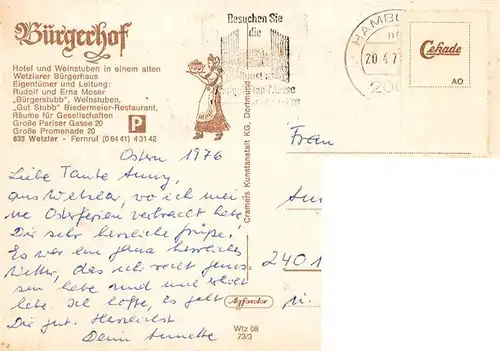 Bürgerhof
Hotel und Weinstuben in einem alten
Wetzlarer Bürgerhaus
Eigentümer und Leitung:
Rudolf und Erna Moser
„Bürgerstubb", Weinstuben,
„Gut Stubb" Biedermeier-Restaurant,
Räume für Gesellschaften
Große Pariser Gasse 20
Große Promenade 20
633 Wetzlar - Fernruf (0 64 41) 4 31 42
P
Ostern 1976
Liebe Tante Anny,
aus Wetzlar, wo ich mei-
ne Osterferien verbracht habe
Dir sehr herzliche Grüße!
Es war ein ganz herrliches
Wetter, das ich recht genos-
sen habe und mich erholt
habe. Ich hoffe, es geht
Dir gut. Herzlichst
Deine Annette
Cramers Kunstanstalt KG, Dortmund
Agfacolor
Wtz 08
73/3
Besuchen Sie
die
HAMBU
20.4.7
200
Cekade
AO
Frau
240 1